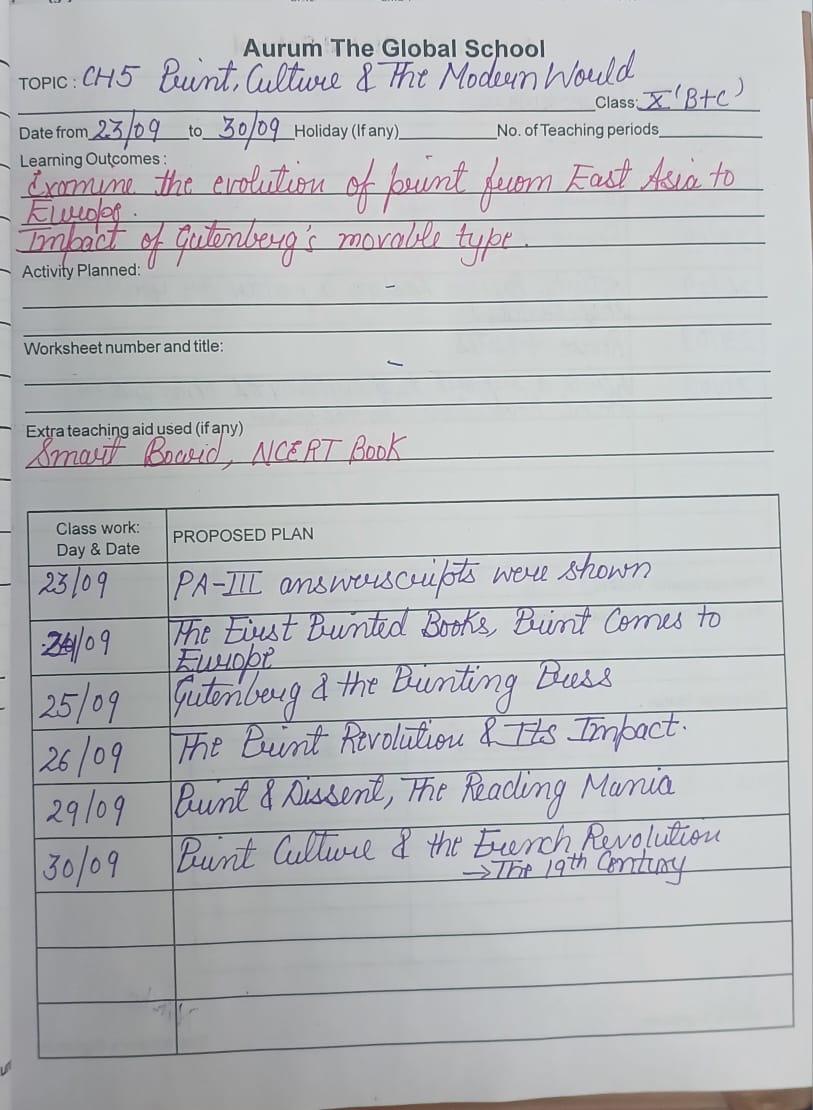 Aurum The Global School
TOPIC : CH5 Print, Culture & The Modern Would
Class: X (B+C)
Date from 23/09 to 30/09 Holiday (If any) No. of Teaching periods
Learning Outcomes :
Examine the evolution of print from East Asia to
Europe.
Impact of Gutenberg's movable type.
Activity Planned: -
Worksheet number and title: -
Extra teaching aid used (if any)
Smart Board, NCERT Book
Class work:
Day & Date
PROPOSED PLAN
23/09 PA-III answerscripts were shown
24/09 The First Printed Books, Print Comes to
Europe
25/09 Gutenberg & the Printing Press
26/09 The Print Revolution & Its Impact.
29/09 Print & Dissent, The Reading Mania
30/09 Print Culture & the French Revolution
→ The 19th Century